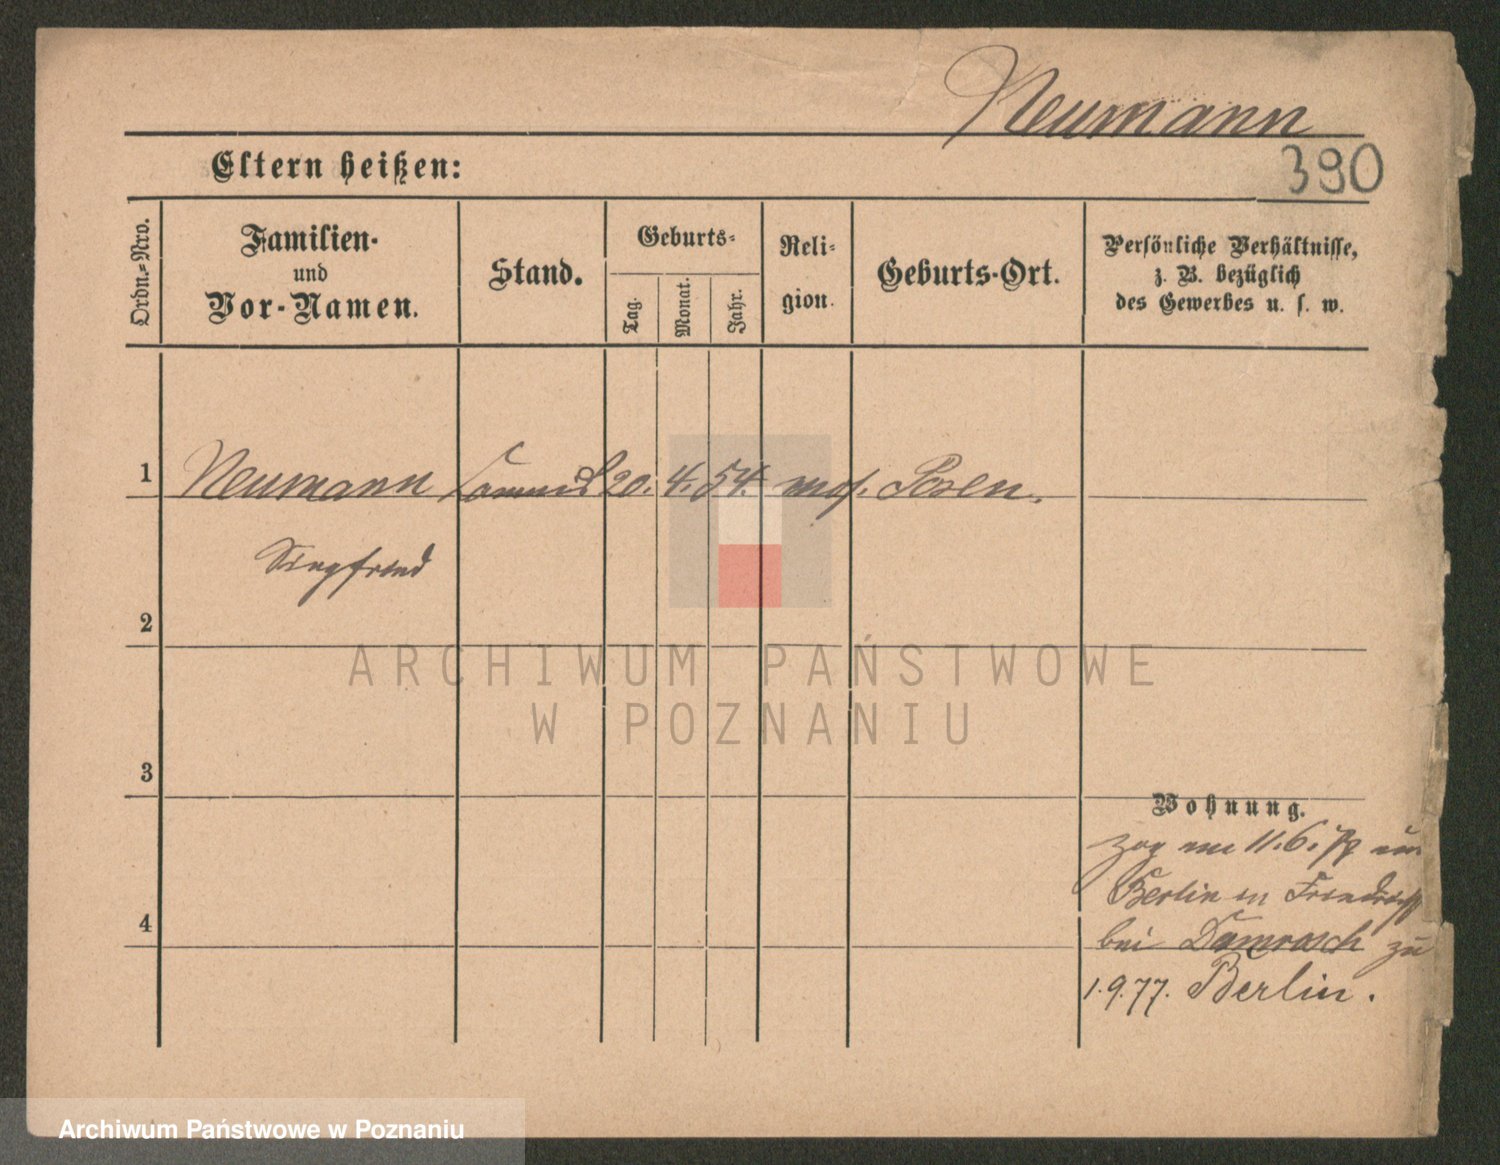 Neumann
390
Eltern heißen:
Ordn.-Nro.
Familien-
und
Vor-Namen.
Stand.
Geburts-
Tag.
Monat.
Jahr.
Reli-
gion.
Geburts-Ort.
Persönliche Verhältnisse,
z. B. bezüglich
des Gewerbes u. s. w.
1 Neumann 20. 4. 54. mos. Posen.
Siegfried
2
ARCHIWUM PAŃSTWOWE
W POZNANIU
3
Wohnung.
zog am 11.6. von
Berlin
4
bei Damrosch zu
1.9.77. Berlin.
Archiwum Państwowe w Poznaniu